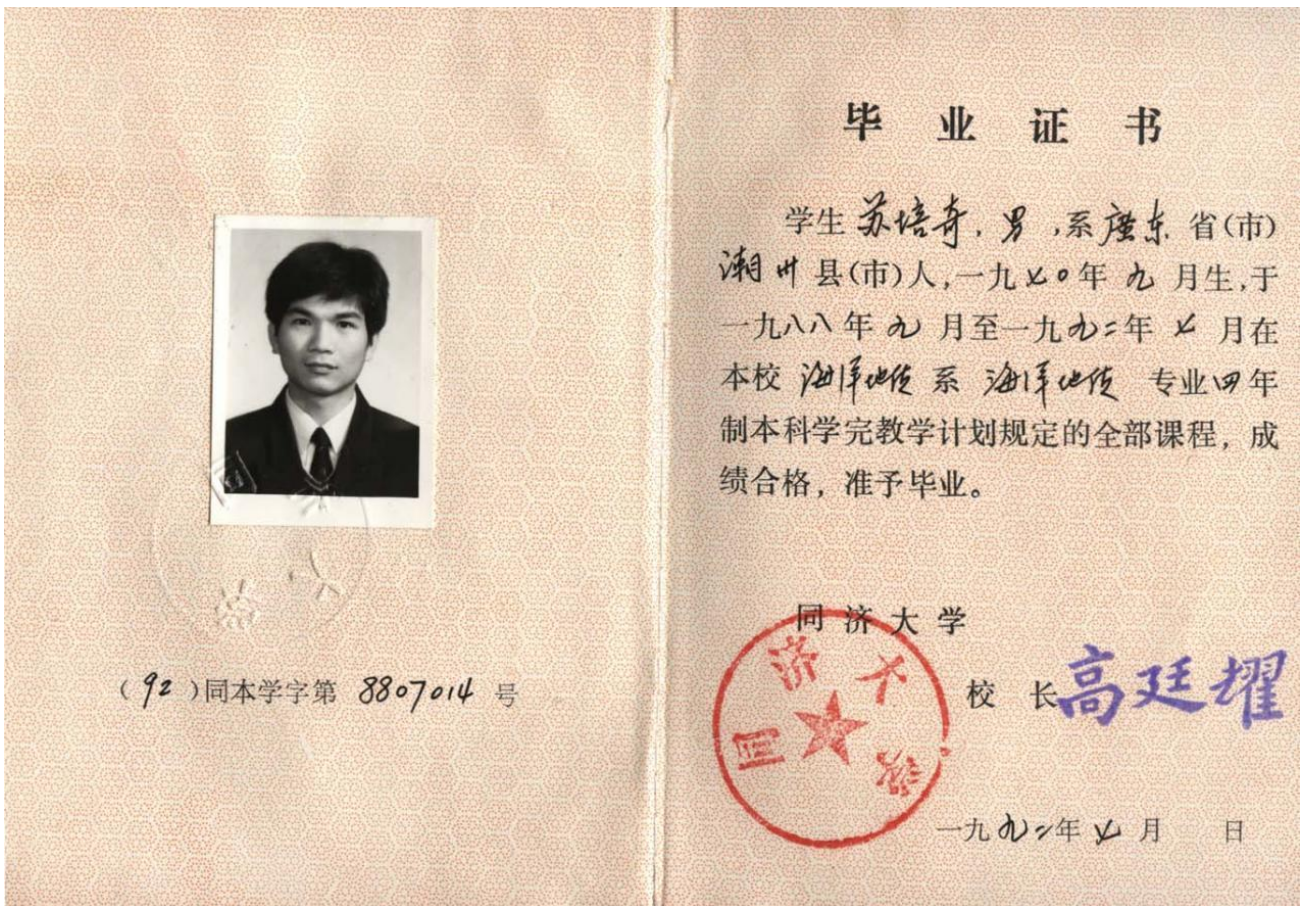 （92）同本学字第 8807014 号
毕业证书
学生 苏培奇，男，系廣东 省(市)
潮州 县(市)人，一九七〇年 九 月生，于
一九八八 年 九 月至一九九二年 七 月在
本校 海洋地质 系 海洋地质 专业四年
制本科学完教学计划规定的全部课程，成
绩合格，准予毕业。
同济大学
同济大学
校 长 高廷耀
一九九二年 七 月 日